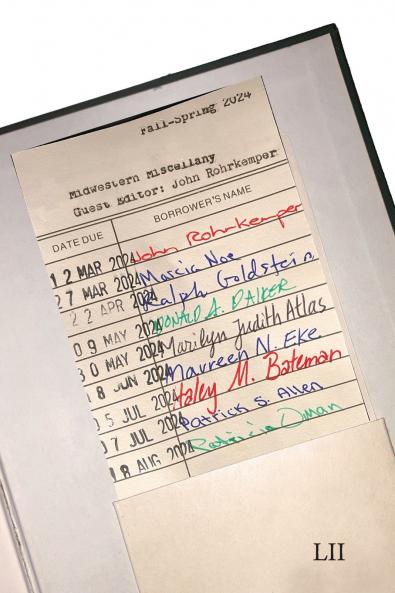 Fall-Spring 2024
Midwestern Miscellany
Guest Editor: John Rohrkemper
DATE DUE BORROWER'S NAME
12 MAR 2024 John Rohrkemper
27 MAR 2024 Marcia Noe
22 APR 2024 Ralph Goldstein
09 MAY 2024 RONALD A. DALKER
30 MAY 2024 Marilyn Judith Atlas
18 JUN 2024 Maureen N. Eke
05 JUL 2024 Haley M. Bateman
07 JUL 2024 Patrick S. Allen
18 AUG 2024 Patricia Oman
LII